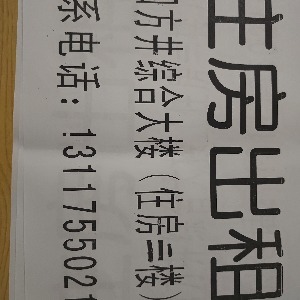 住房出租
四方井综合大楼（住房三楼）
系电话：131175502